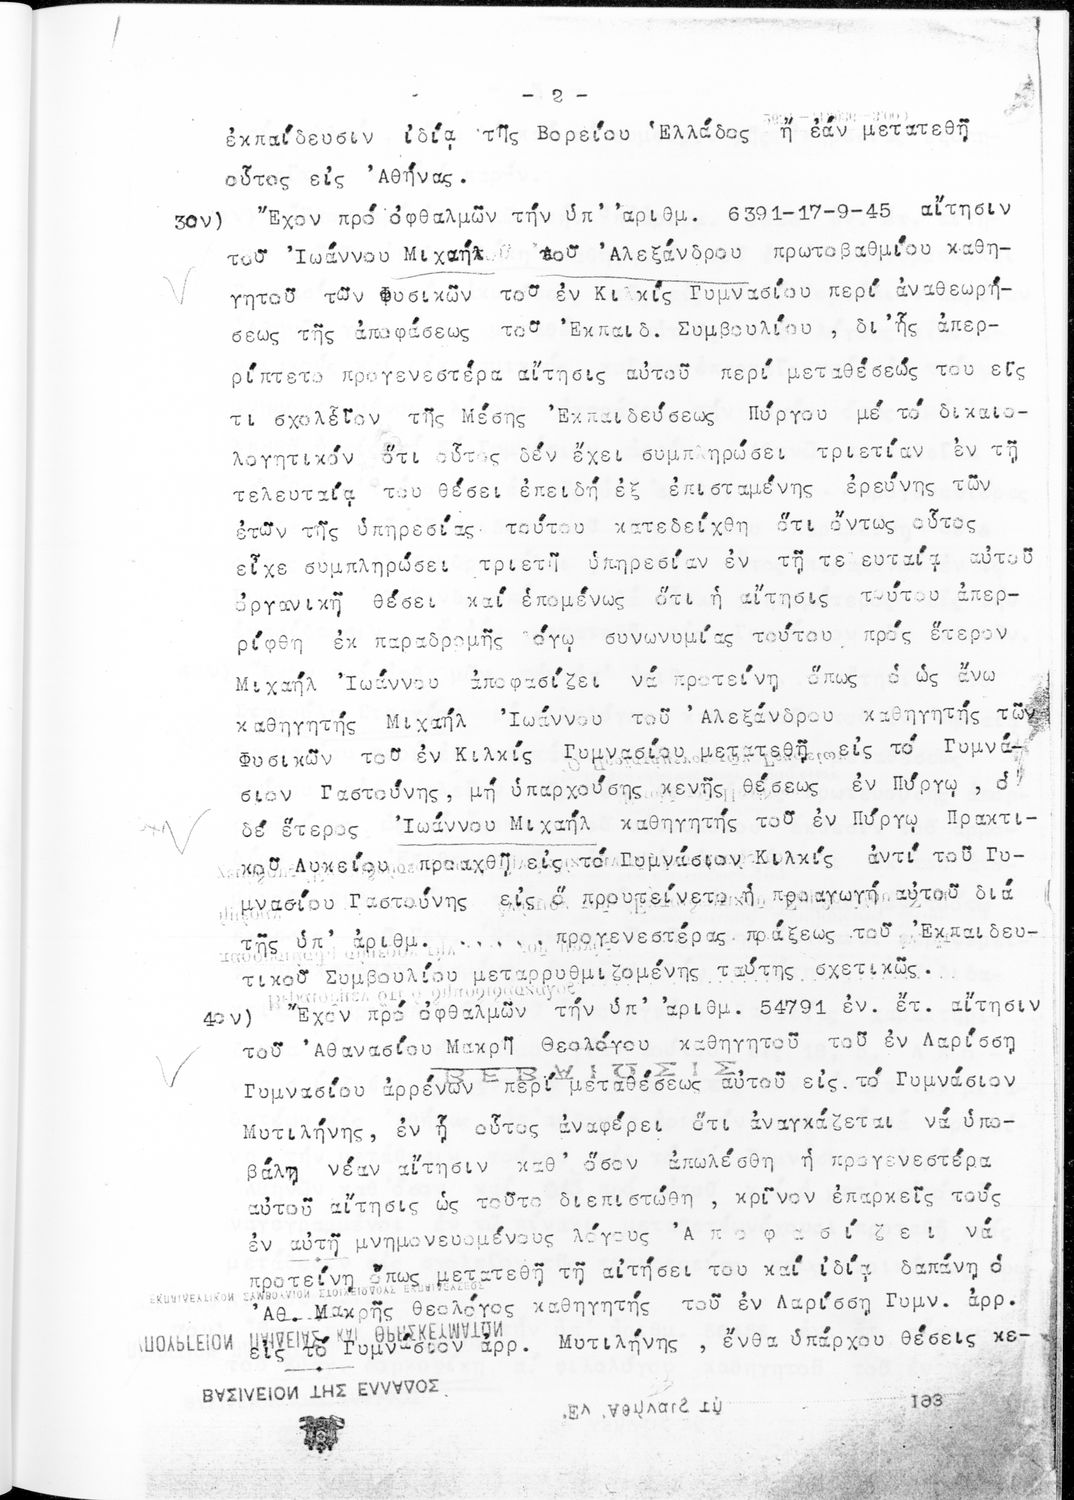 - 2 -
ἐκπαίδευσιν ἰδίᾳ τῆς Βορείου Ἑλλάδος ἤ ἐάν μετατεθῇ
οὗτος εἰς Ἀθήνας.
3ον) Ἔχον πρό ὀφθαλμῶν τήν ὑπ' ἀριθμ. 6391-17-9-45 αἴτησιν
τοῦ Ἰωάννου Μιχαήλ τοῦ Ἀλεξάνδρου πρωτοβαθμίου καθη-
γητοῦ τῶν Φυσικῶν τοῦ ἐν Κιλκίς Γυμνασίου περί ἀναθεωρή-
σεως τῆς ἀποφάσεως τοῦ Ἐκπαιδ. Συμβουλίου , δι'ἧς ἀπερ-
ρίπτετο προγενεστέρα αἴτησις αὐτοῦ περί μεταθέσεώς του εἴς
τι σχολεῖον τῆς Μέσης Ἐκπαιδεύσεως Πύργου μέ τό δικαιο-
λογητικόν ὅτι οὗτος δέν ἔχει συμπληρώσει τριετίαν ἐν τῇ
τελευταίᾳ του θέσει ἐπειδή ἐξ ἐπισταμένης ἐρεύνης τῶν
ἐτῶν τῆς ὑπηρεσίας τούτου κατεδείχθη ὅτι ὄντως οὗτος
εἶχε συμπληρώσει τριετῆ ὑπηρεσίαν ἐν τῇ τελευταίᾳ αὐτοῦ
ὀργανικῇ θέσει καί ἑπομένως ὅτι ἡ αἴτησις τούτου ἀπερ-
ρίφθη ἐκ παραδρομῆς λόγῳ συνωνυμίας τούτου πρός ἕτερον
Μιχαήλ Ἰωάννου ἀποφασίζει νά προτείνῃ ὅπως ὁ ὡς ἄνω
καθηγητής Μιχαήλ Ἰωάννου τοῦ Ἀλεξάνδρου καθηγητής τῶν
Φυσικῶν τοῦ ἐν Κιλκίς Γυμνασίου μετατεθῇ εἰς τό Γυμνά-
σιον Γαστούνης, μή ὑπαρχούσης κενῆς θέσεως ἐν Πύργῳ , ὁ
δέ ἕτερος Ἰωάννου Μιχαήλ καθηγητής τοῦ ἐν Πύργῳ Πρακτι-
κοῦ Λυκείου προαχθῇ εἰς τό Γυμνάσιον Κιλκίς ἀντί τοῦ Γυ-
μνασίου Γαστούνης εἰς ὅ προυτείνετο ἡ προαγωγή αὐτοῦ διά
τῆς ὑπ' ἀριθμ. ...... προγενεστέρας πράξεως τοῦ Ἐκπαιδευ-
τικοῦ Συμβουλίου μεταρρυθμιζομένης ταύτης σχετικῶς.
4ον) Ἔχον πρό ὀφθαλμῶν τήν ὑπ' ἀριθμ. 54791 ἐν. ἔτ. αἴτησιν
τοῦ Ἀθανασίου Μακρῆ Θεολόγου καθηγητοῦ τοῦ ἐν Λαρίσσῃ
Γυμνασίου ἀρρένων περί μεταθέσεως αὐτοῦ εἰς τό Γυμνάσιον
Μυτιλήνης, ἐν ᾗ οὗτος ἀναφέρει ὅτι ἀναγκάζεται νά ὑπο-
βάλῃ νέαν αἴτησιν καθ' ὅσον ἀπωλέσθη ἡ προγενεστέρα
αὐτοῦ αἴτησις ὡς τοῦτο διεπιστώθη , κρῖνον ἐπαρκεῖς τούς
ἐν αὐτῇ μνημονευομένους λόγους Ἀ π ο φ α σ ί ζ ε ι νά
προτείνῃ ὅπως μετατεθῇ τῇ αἰτήσει του καί ἰδίᾳ δαπάνῃ ὁ
Ἀθ. Μακρῆς θεολόγος καθηγητής τοῦ ἐν Λαρίσσῃ Γυμν. ἀρρ.
εἰς τό Γυμνάσιον ἀρρ. Μυτιλήνης , ἔνθα ὑπάρχου θέσεις κε-
ΕΚΠΑΙΔΕΥΤΙΚΟΝ ΣΥΜΒΟΥΛΙΟΝ ΣΤΟΙΧΕΙΩΔΟΥΣ ΕΚΠΑΙΔΕΥΣΕΩΣ
ΥΠΟΥΡΓΕΙΟΝ ΠΑΙΔΕΙΑΣ ΚΑΙ ΘΡΗΣΚΕΥΜΑΤΩΝ
ΒΑΣΙΛΕΙΟΝ ΤΗΣ ΕΛΛΑΔΟΣ
Ἐν Ἀθήναις τῇ 193
ΒΕΒΑΙΩΣΙΣ